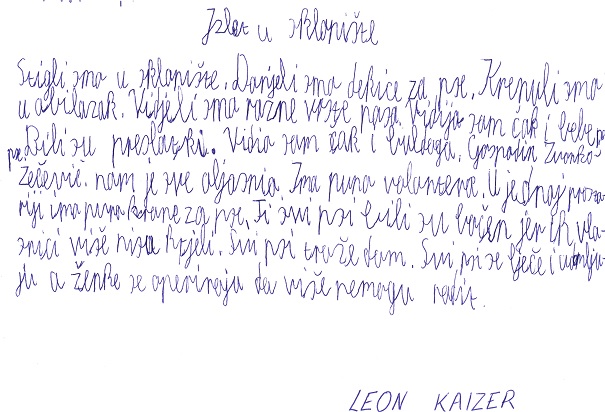 Izlet u sklonište
Stigli smo u sklonište. Donjeli smo dekice za pse. Krenuli smo
u obilazak. Vidjeli smo razne vrste pasa. Vidio sam čak i bebe
pse. Bili su preslatki. Vidio sam čak i buldoga. Gospodin Zvonko
Zečević nam je sve objasnio. Ima puno volontera. U jednoj prosto
riji ima puno hrane za pse. Ti svi psi bili su bačen jer ih vla
snici više nisu htjeli. Svi psi traže dom. Svi psi se liječe i
ju a ženke se operiraju da više nemogu rodit.
LEON KAIZER